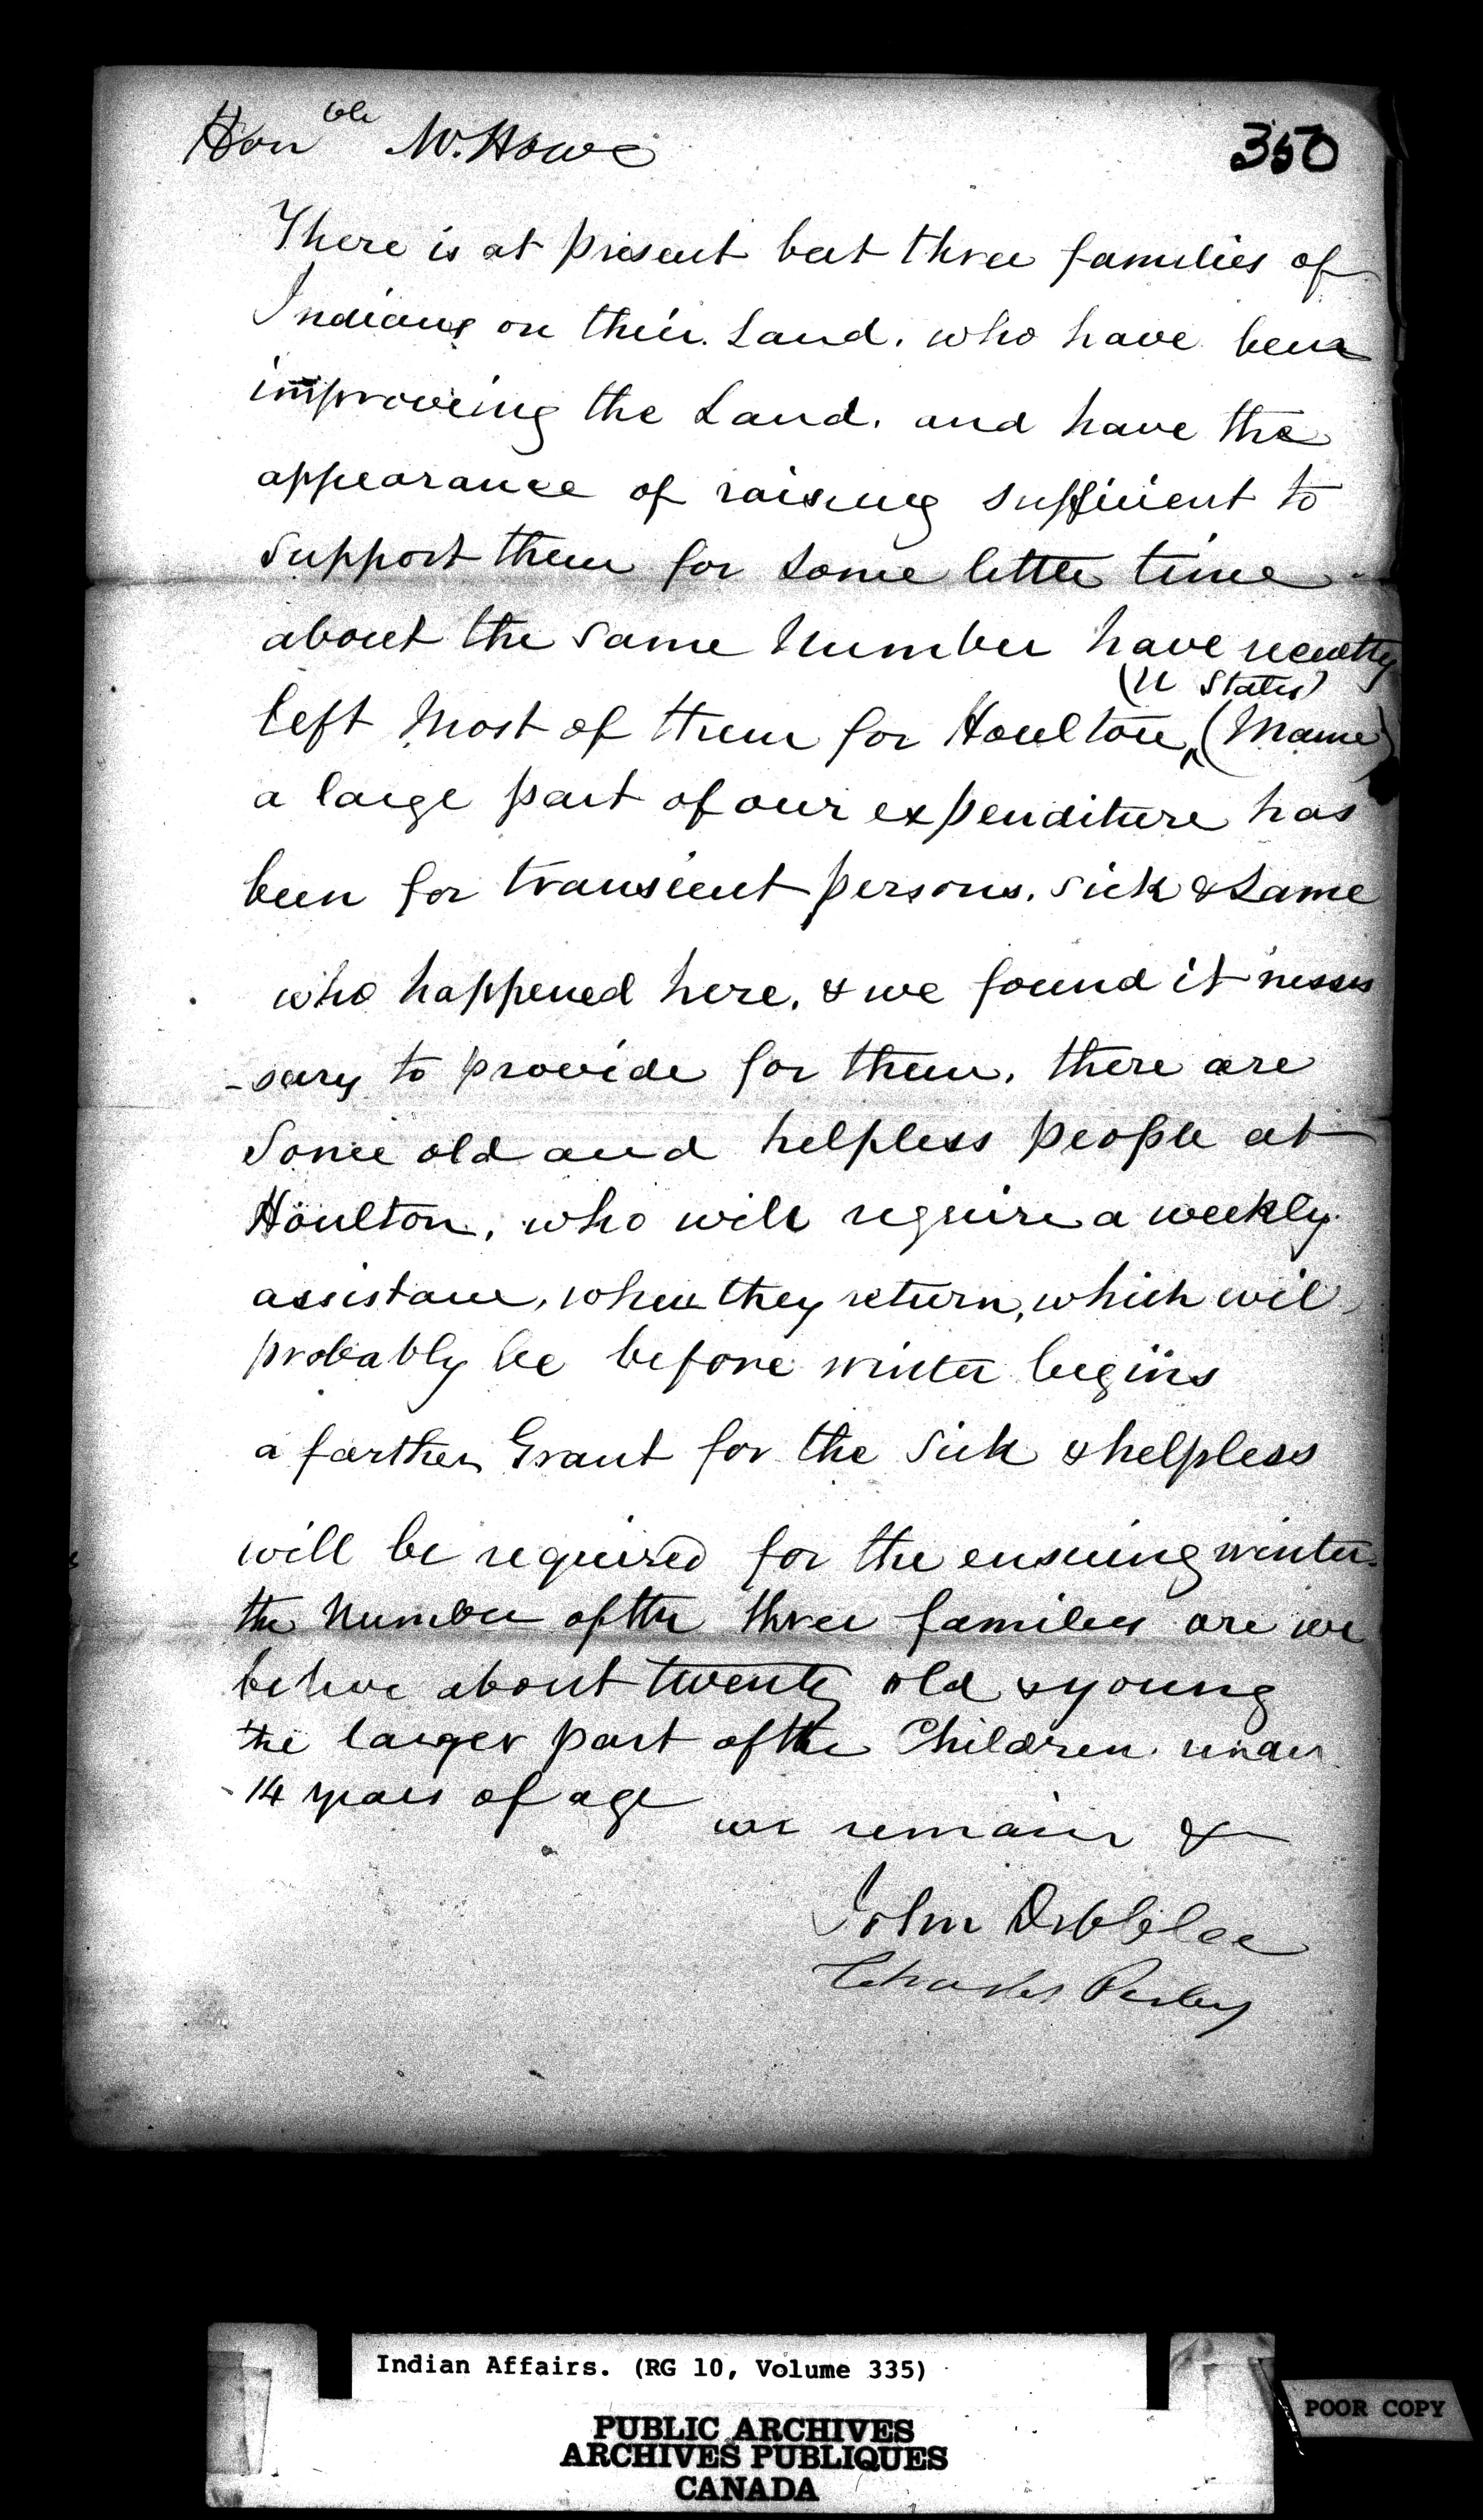 Honble Mr. Howe
350
There is at present but three families of
Indians on their Land. who have been
improveing the Land. and have the
appearance of raising sufficient to
support them for some little time
about the same Number have recently
(U States)
left Most of them for Houlton, (Maine)
a large part of our expenditure has
been for transient persons, sick & Lame
who happened here. & we found it nesses
-sary to provide for them, there are
Some old and helpless people at
Houlton, who will require a weekly
assistance, when they return, which will
probably be before winter begins
a farther Grant for the Sick & helpless
will be required for the ensuing winter.
the Number of the three families are we
believe about twenty old & young
the larger part of the Children under
14 years of age
we remain &
John Dibblee
Charles Perley
Indian Affairs. (RG 10, Volume 335)
PUBLIC ARCHIVES
ARCHIVES PUBLIQUES
CANADA
POOR COPY